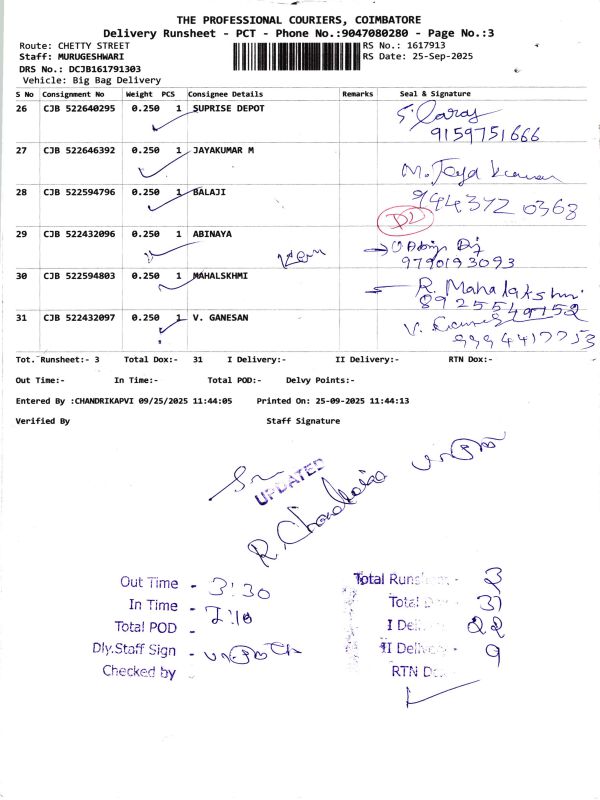 THE PROFESSIONAL COURIERS, COIMBATORE
Delivery Runsheet - PCT - Phone No.:9047080280 - Page No.:3
Route: CHETTY STREET RS No.: 1617913
Staff: MURUGESHWARI RS Date: 25-Sep-2025
DRS No.: DCJB161791303
Vehicle: Big Bag Delivery
S No Consignment No Weight PCS Consignee Details Remarks Seal & Signature
26 CJB 522640295 0.250 1 SUPRISE DEPOT
9159751666
27 CJB 522646392 0.250 1 JAYAKUMAR M
28 CJB 522594796 0.250 1 BALAJI 944372 0368
29 CJB 522432096 0.250 1 ABINAYA
9790193093
30 CJB 522594803 0.250 1 MAHALSKHMI R. Mahalakshmi
8925549152
31 CJB 522432097 0.250 1 V. GANESAN
9994417753
Tot. Runsheet:- 3 Total Dox:- 31 I Delivery:- II Delivery:- RTN Dox:-
Out Time:- In Time:- Total POD:- Delvy Points:-
Entered By :CHANDRIKAPVI 09/25/2025 11:44:05 Printed On: 25-09-2025 11:44:13
Verified By Staff Signature
UPDATED
Out Time - 3:30
In Time - 7:10
Total POD -
Dly.Staff Sign -
Checked by
3
Total 31
I 22
II 9
RTN